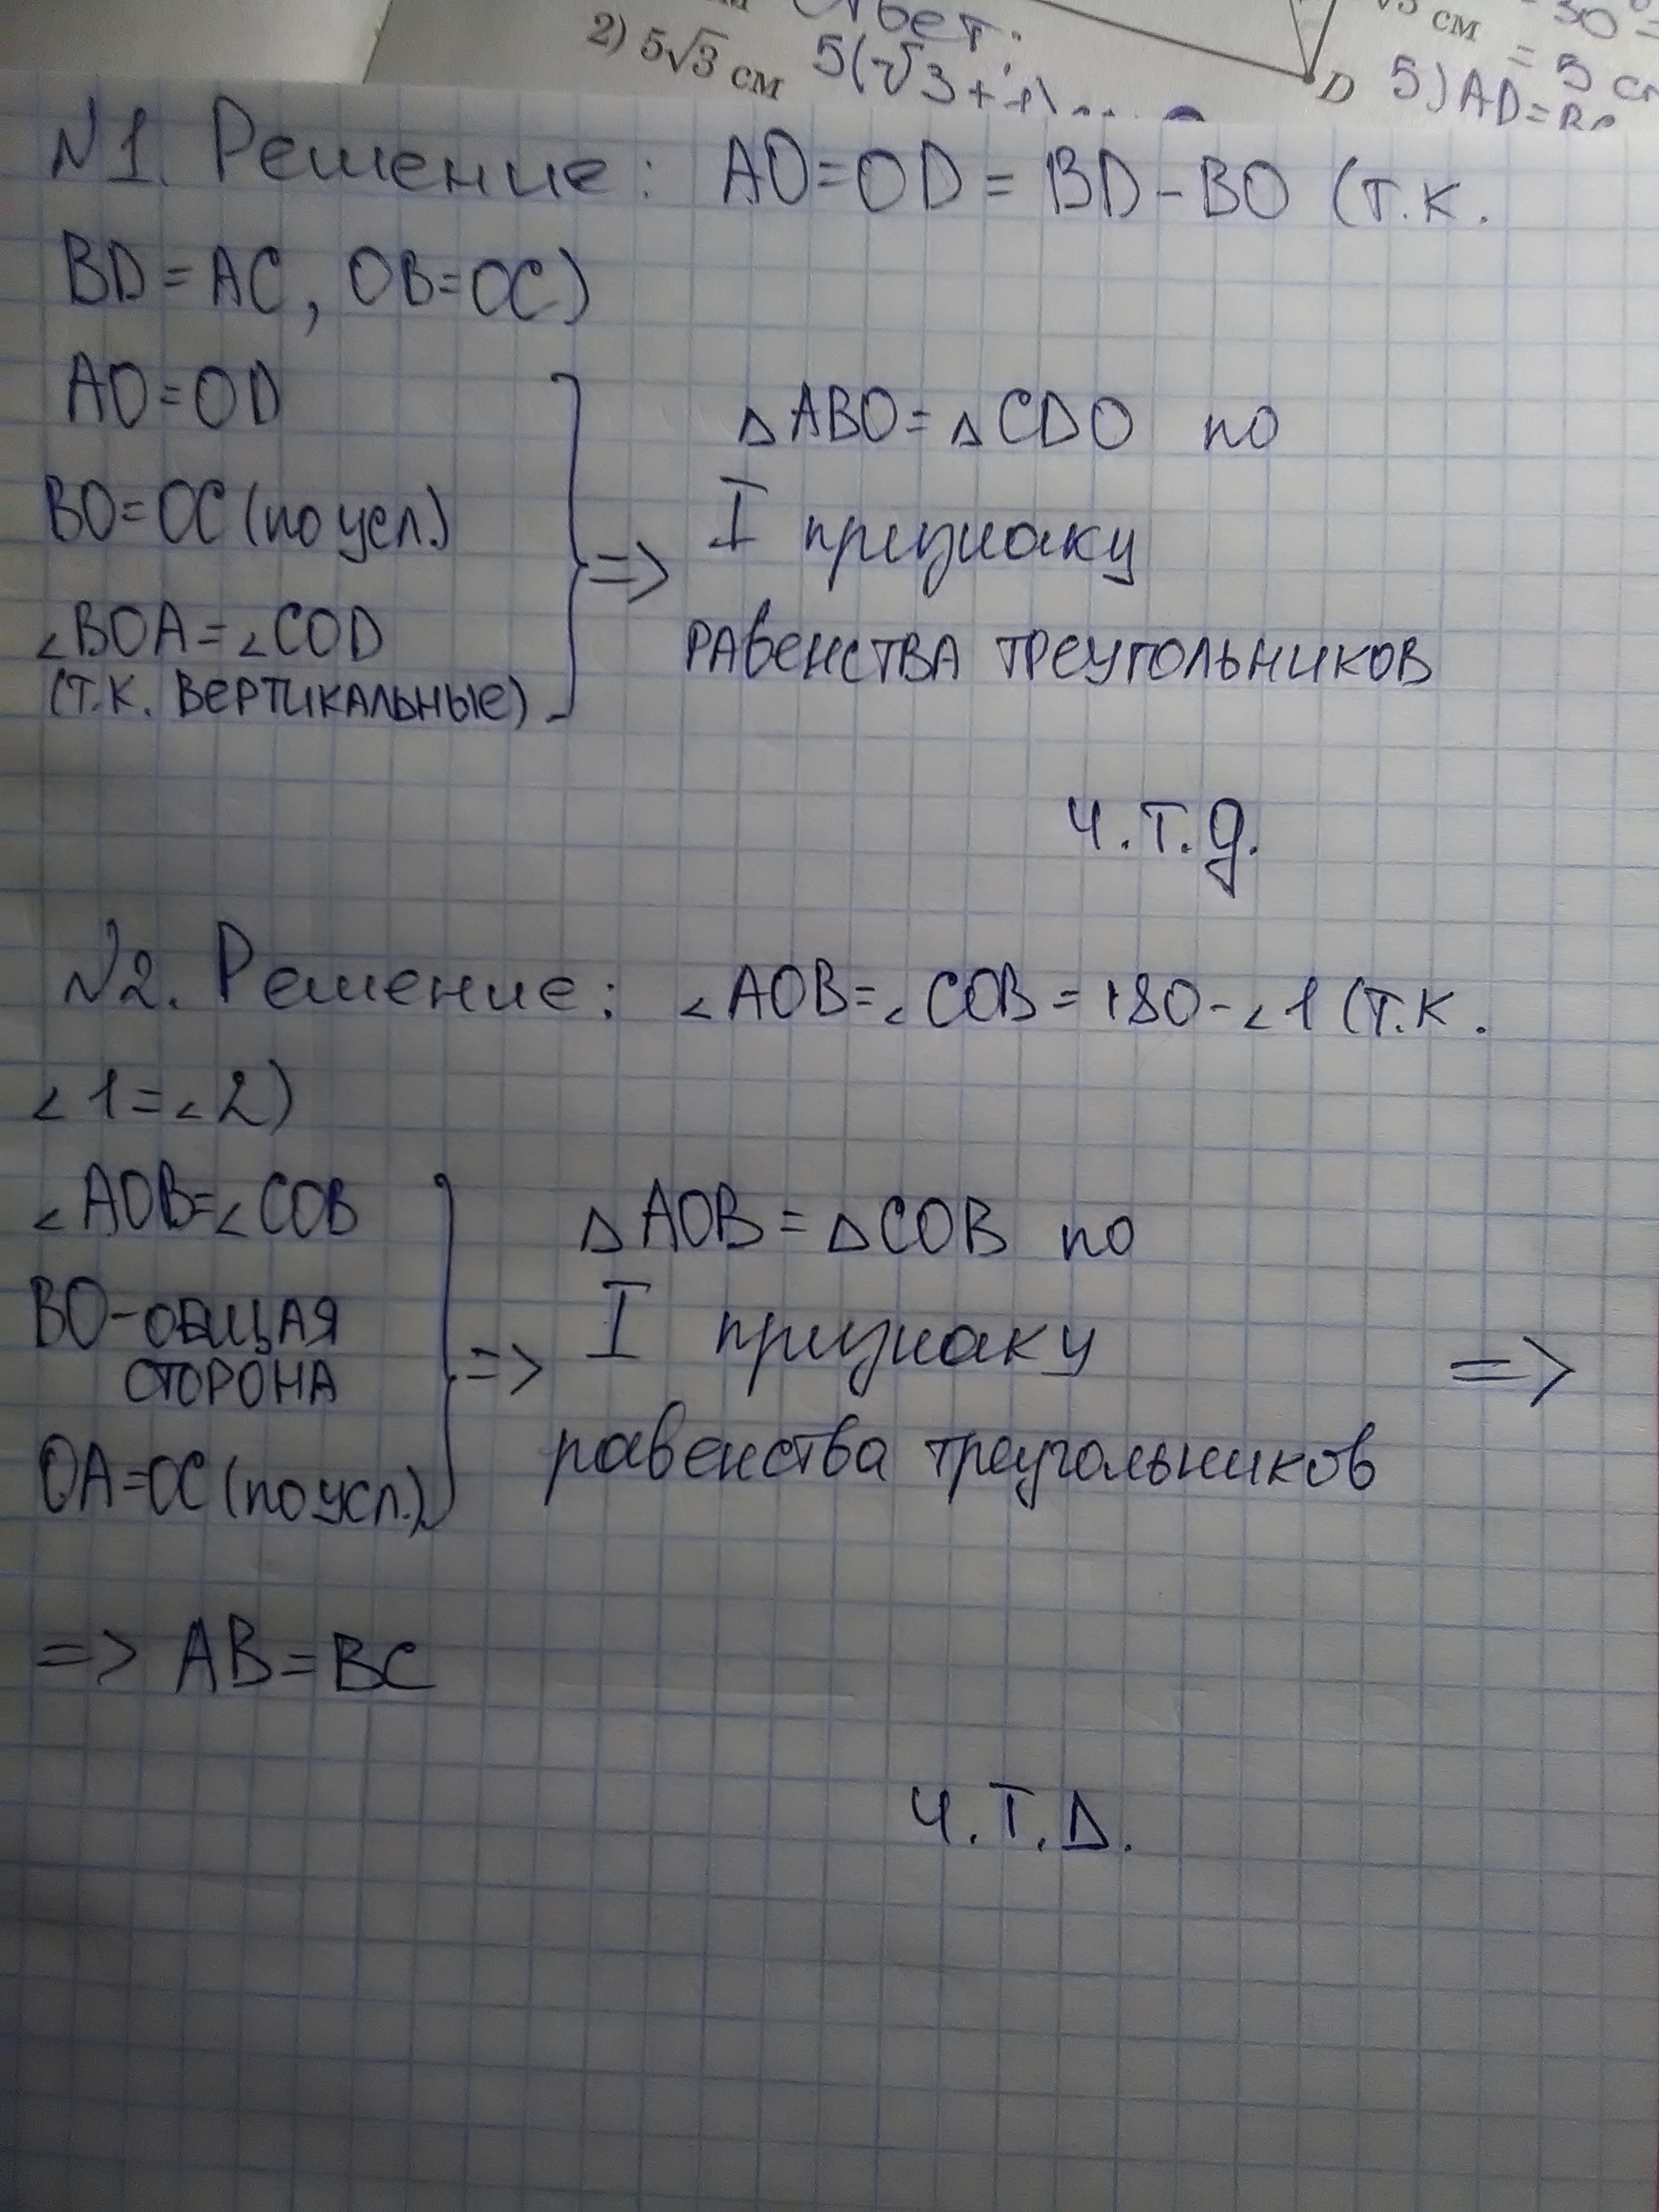 Ответ:
√3 см
2) 5√3 см 5(√3+1)... D 5) AD=
= 5
№1. Решение: AO=OD=BD-BO (т.к.
BD=AC, OB=OC)
AO=OD
BO=OC (по усл.)
∠BOA=∠COD
(т.к. вертикальные)
=> △ABO=△CDO по
I признаку
равенства треугольников
ч.т.д.
№2. Решение: ∠AOB=∠COB=180-∠1 (т.к.
∠1=∠2)
∠AOB=∠COB
BO-общая
сторона
OA=OC (по усл.)
=> △AOB=△COB по
I признаку =>
равенства треугольников
=> AB=BC
Ч.Т.Д.